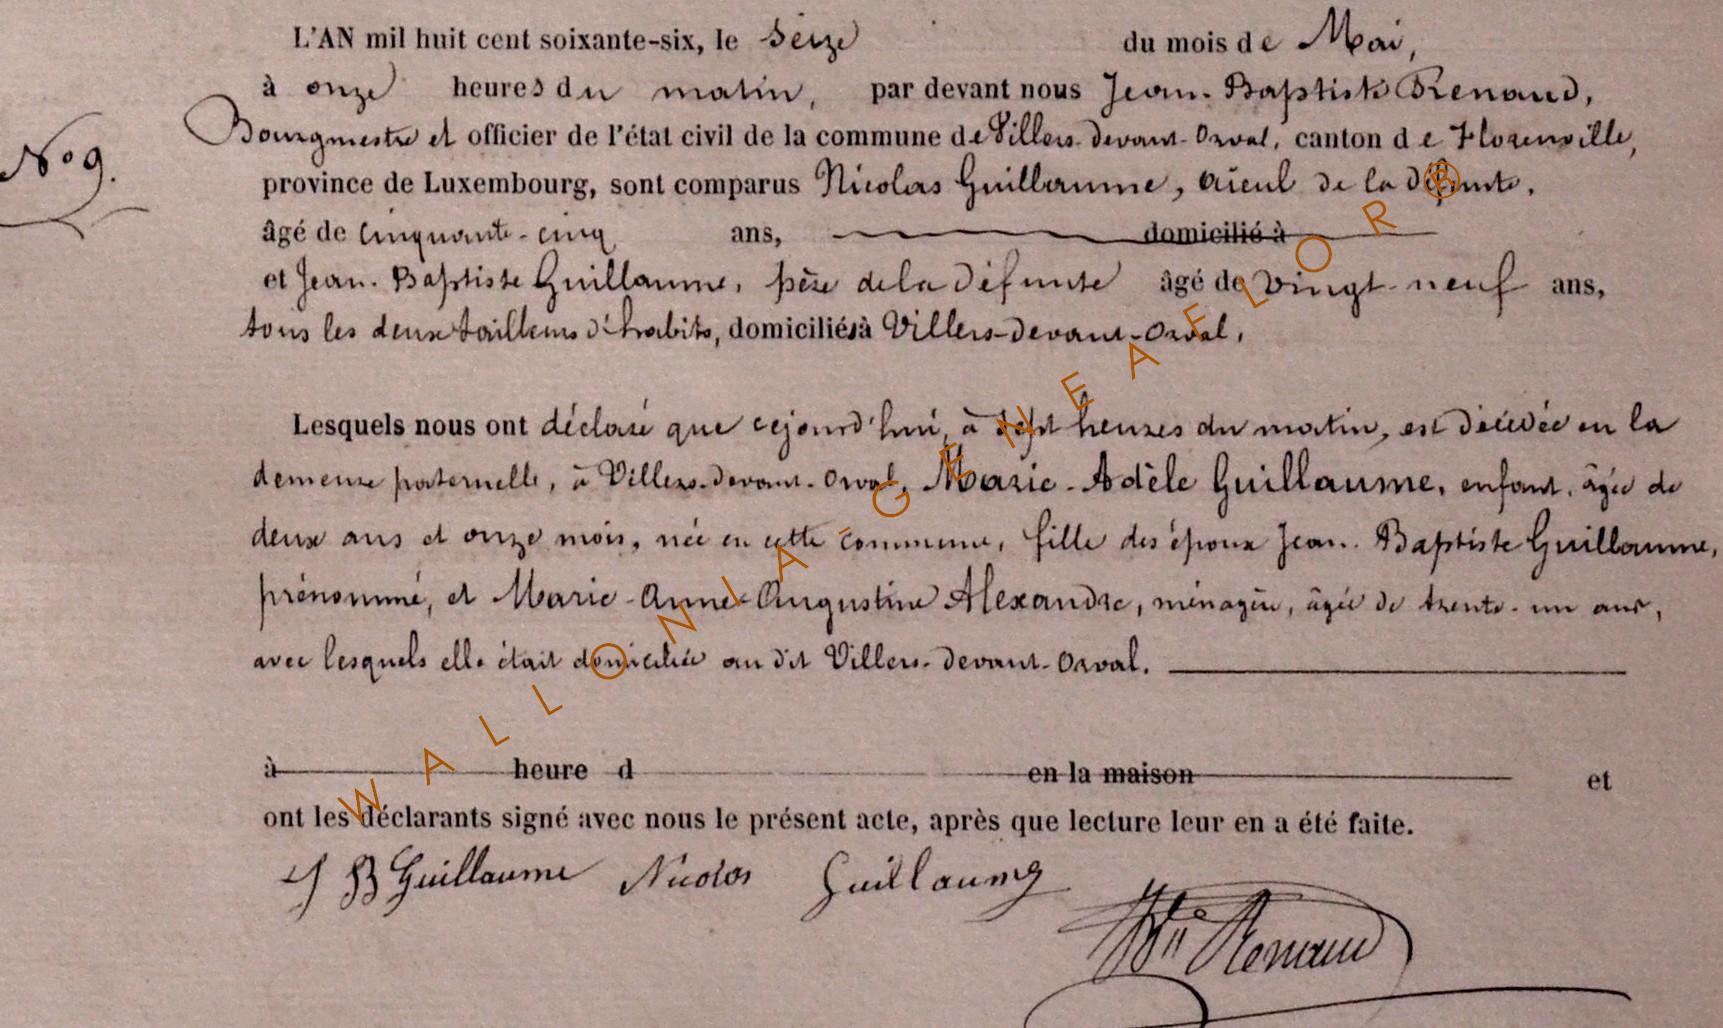 L'AN mil huit cent soixante-six, le seize du mois de Mai,
à onze heures du matin, par devant nous Jean-Baptiste Renaud,
Bourgmestre et officier de l'état civil de la commune de Villers-devant-Orval, canton de Florenville,
N° 9.
province de Luxembourg, sont comparus Nicolas Guillaume, aïeul de la défunte,
âgé de cinquante-cinq ans, domicilié à
et Jean-Baptiste Guillaume, père de la défunte âgé de vingt-neuf ans,
tous les deux tailleurs d'habits, domiciliés à Villers-devant-Orval.
Lesquels nous ont déclaré que cejourd'hui, à sept heures du matin, est décédée en la
demeure paternelle, à Villers-devant-Orval, Marie-Adèle Guillaume, enfant, âgée de
deux ans et onze mois, née en cette commune, fille des époux Jean-Baptiste Guillaume,
prénommé, et Marie-Anne-Augustine Alexandre, ménagère, âgée de trente-un ans,
avec lesquels elle était domiciliée au dit Villers-devant-Orval.
à heure d en la maison et
ont les déclarants signé avec nous le présent acte, après que lecture leur en a été faite.
J B Guillaume Nicolas Guillaume
Renaud
WALLONIA-GENEAFLOR®